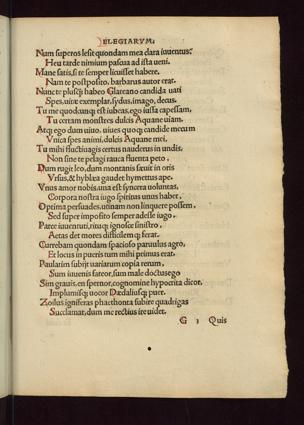 ELEGIARVM.
Num superos lesit quondam mea clara iuuentus?
Heu tarde nimium pascua ad ista veni.
Mane satis, si te semper licuisset habere,
Nam te postposito, barbarus autor erat.
Nunc te plusq̃ habeo Glareano candida vati
Spes, uitæ exemplar, sydus, imago, decus.
Tu me quodcunq; est iubeas, ego iussa capessam,
Tu certam monstres dulcis Aquane uiam.
Atq; ego dum uiuo, uiues quoq; candide mecum
Vnica spes animi, dulcis Aquane mei.
Tu mihi fluctiuagis certus nauderus in undis
Non sine te pelagi rauca fluenta peto,
Dum rugit leo, dum montanis sæuit in oris
Vrsus, & hyblæa gaudet hymettus ape.
Vnus amor nobis, una est syncera voluntas,
Corpora nostra iugo spiritus unus habet,
Optima persuades, utinam non linquere possem,
Sed super imposito semper adesse iugo,
Parce iuuentuti, riuuq; ignosce sinistro,
Aetas det mores difficilemq; ferat.
Currebam quondam spacioso paruulus agro,
Et locus in pueris tum mihi primus erat.
Paulatim subijt variarum copia rerum,
Sum iuuenis fateor, sum male doctus ego
Sim grauis, en spernor, cognomine hypocrita dicor,
Implumisq; uocor Dædaliusq; puer.
Zoilus igniferas phaethonta subire quadrigas
Succlamat, dum me rectius ire uidet.
G 3 Quis